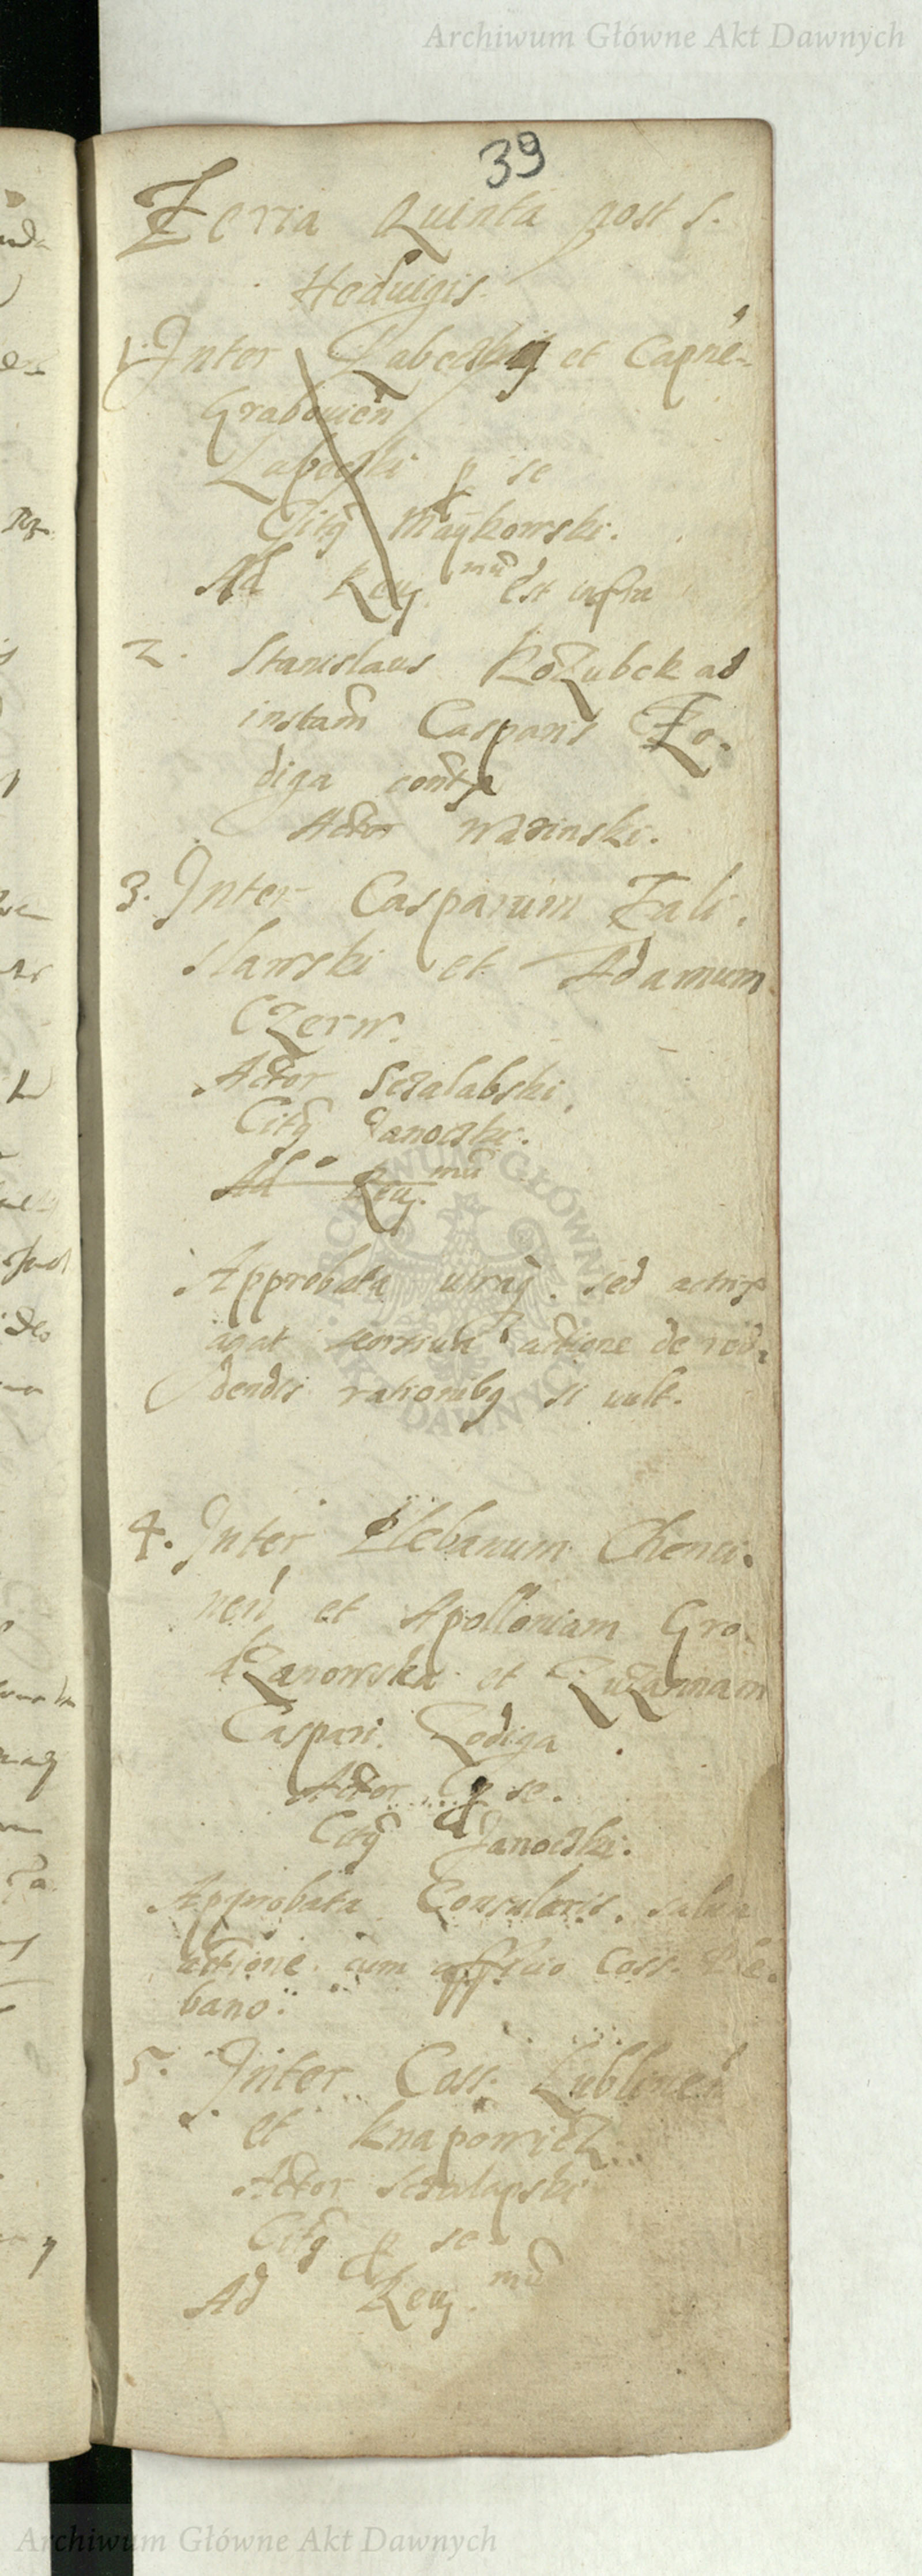 Archiwum Główne Akt Dawnych
39
Feria Quinta post S.
Heduigis
1. Inter et Capne-
Grabouien̄
p se
Citq Maykowski.
Ad Reuj mū Est infra
2. Stanislaus Kozubek ad
instam̄ Casparis Zo-
diga contr
Actor Wasinski.
3. Inter Casparum Zali-
slawski et Adamum
Czerw.
Actor Sczalabski,
Citq Janoczki.
Ad Reuj. mū
Approbata utraq. sed
agat seorsiua actione de red-
dendis rationibq si uult.
4. Inter Plebanum Chenci-
nen̄ et Apolloniam Gro-
dzanowska et Zuzannam
Caspari Zodiga
Actor p se.
Citq Janoczki.
Approbata Consularis. salua
actione cum officio Coss. Ple-
bano.
5. Inter Coss. Lublinen̄
et Knapowicz
Actor Sczalapski
Citq p se
Ad Reuj. mū
Archiwum Główne Akt Dawnych